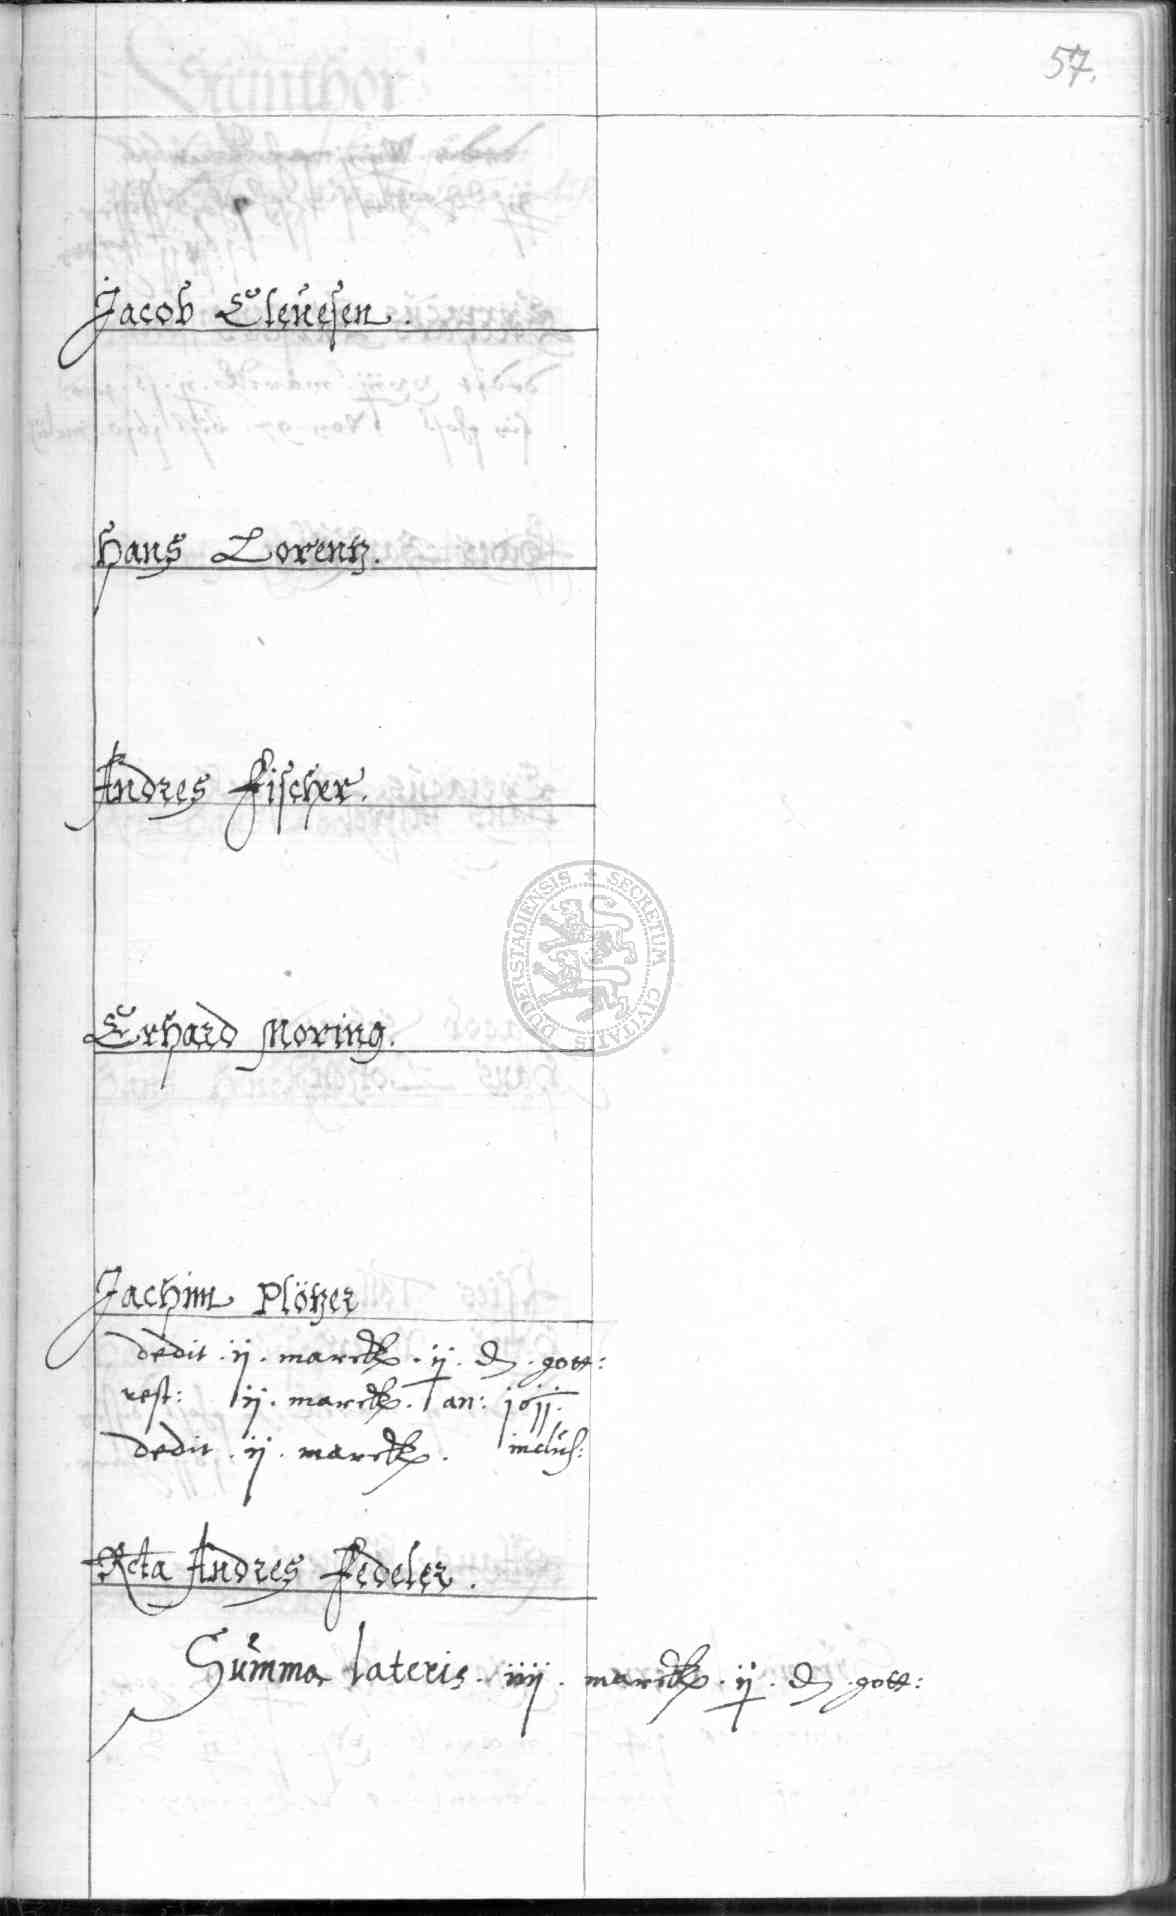 57.
Jacob Cleuesen.
Hans Lorentz.
Andres Fischer.
SECRETUM CIVITATIS DUDERSTADIENSIS
Erhard Moring.
Jachim Plötzer
dedit .ij. marck. ij. d. gott:
rest: ij. marck. an: 1611.
dedit .ij. marck. inclus:
Rcta Andres Fedeler.
Summa lateris. iiij. marck. ij. d. gott: